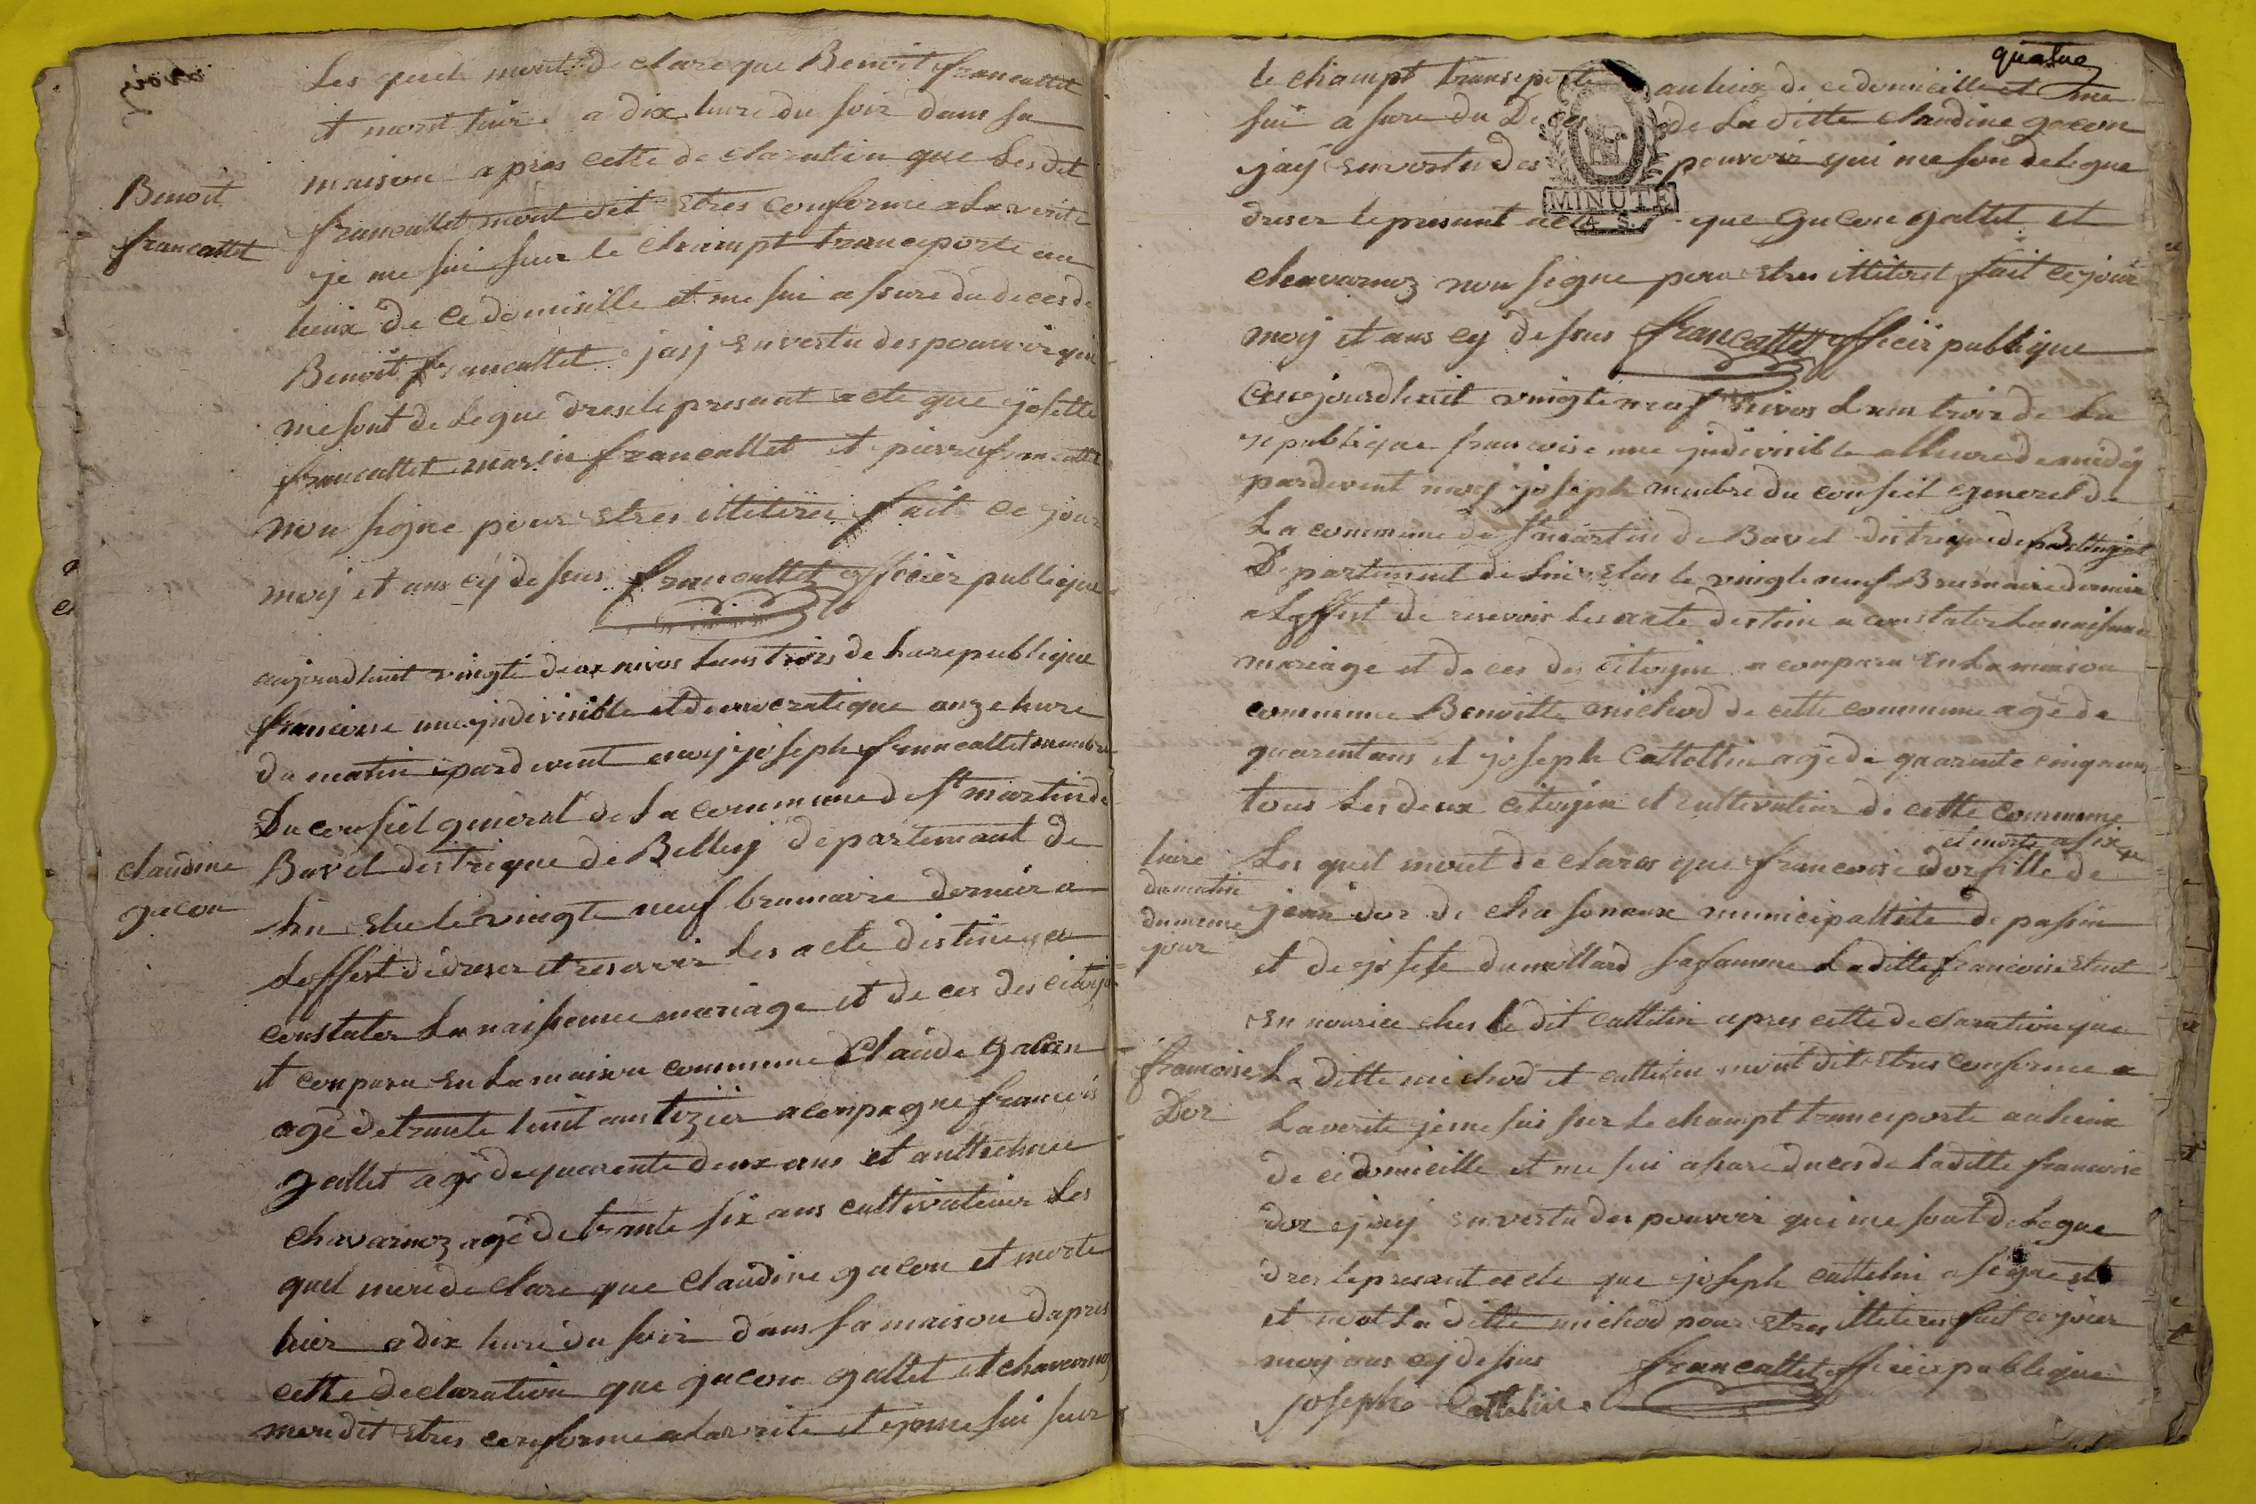 trois
Les quels mont declare que Benoit francallet
et mort hier a dix hure du soir dans sa
maison apres cette declaration que Lesdit
Benoit
francallet
francallet mont dit Etres conforme a La verite
je me sui sur le champt transeporte au
lieux de ce domisille et me sui assure du deces de
Benoit francallet jaij En vertu des pouvoir qui
me sont delegue drese le presant acte que josette
francallet marin francallet et pierre francallet
non signe pour Etres illiteree fait ce jour
moij et ans cy desus francallet officier publique
aujourdhuit vingte deux nivos Lans trois de La republique
francoise une jndivisible et democratique onze hure
du matin pardevent moij joseph francallet membre
Du conseil general de La commune de st martin de
claudine
gacon
Bavel distrique de Belley departemant de
Lin Elu le vingte neuf brumaire dernier a
Leffest de dreser et resevoir Les acte destine a
constater La naissance mariage et deces des citoije
et conparu En La maison commune Claude gacon
age de trante huit ans tizier aconpagne francois
gallet age de quarente deux ans et anthelme
chavarnoz age de trante six ans cultivateur Les
quel mon declare que claudine gacon et morte
hier a dix hure du soir dans sa maison dapres
cette declaration que gacon gallet et chavarnoz
mon dit Etres conforme a La verite et je me sui sur
quatre
le champt transeporte au lieux de ce domicille et me
sui asure du Deces de La ditte claudine gacon
jaij En vertu des pouvoir qui me son delegue
MINUTE
dreser le presant acte que gacon gallet et
chavarnoz non signe pour Etres illiteret fait ce jour
moij et ans cy desus francallet officier publique
Ceuejourdhuit vingte neuf nivos Lan trois de La
republique francoise une jndivisible a Lheure de midij
pardevent moij joseph menbre du conseil general de
La commune de st martin de Bavel distrique de Belley
Departement de Lin Elus le vingte neuf Brumaire dernier
a Leffest de resevoir les acte destine a constater La naissance
mariage et deces des citoijen a conparu En La maison
commune Benoitte michod de cette commune age de
quarent ans et joseph Cattellin age de quarante cinq ans
tous Les deux citoijen et cultivateur de cette commune
et morte a six
huire
du matin
du meme
jour
Les quel mont declares que francoise dor fille de
jean dor de chasonaux municipallite de passin
et de josete dumollard sa famme La ditte francoise Etant
En nourice ches le dit cattelin apres cette declaration que
francoise
Dor
La ditte michod et cattelin mont dit Etres conforme a
La verite je me sui sur le champt transeporte au lieux
de ce domicille et me sui asure du ces de La ditte francoise
dor ejaij En vertu des pouvoir qui me sont delegue
dres le presant acte que joseph cattelin a signe
et not La ditte michod pour Etres illiteres fait ce jour
moij ans cy desus francallet officier publique
joseph Cattelin